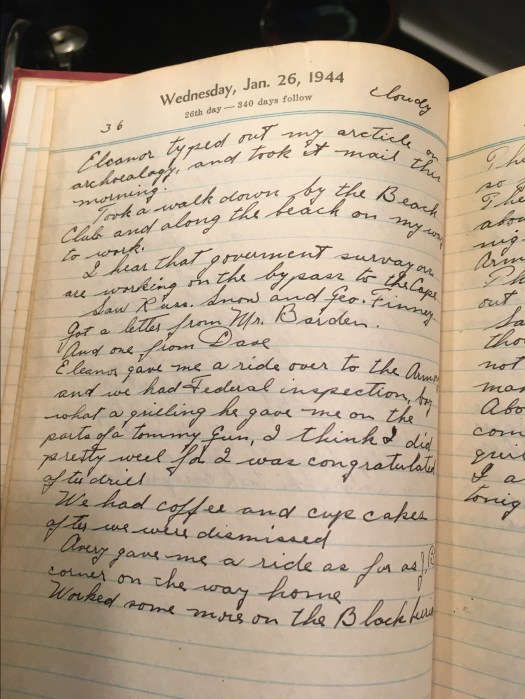 Wednesday, Jan. 26, 1944
cloudy
26th day — 340 days follow
36
Eleanor typed out my arcticle on
archoealogy, and took it mail this
morning.
Took a walk down by the Beach
Club and along the beach on my way
to work.
I hear that goverment survayors
are working on the bypass to the Cape
Saw Russ. Snow and Geo. Finney
Got a letter from Mr. Barden.
And one from Dave
Eleanor gave me a ride over to the Armory
and we had Federal inspection, boy
what a grilling he gave me on the
parts of a tommy Gun, I think I did
pretty well for I was congratulated
after drill
We had coffee and cup cakes
after we were dismissed
Avery gave me a ride as far as
corner on the way home
Worked some more on the Black
Tha
so
The
abou
nig
Arm
Th
out
Sa
tho
not
mas
Abo
com
I a
tonig